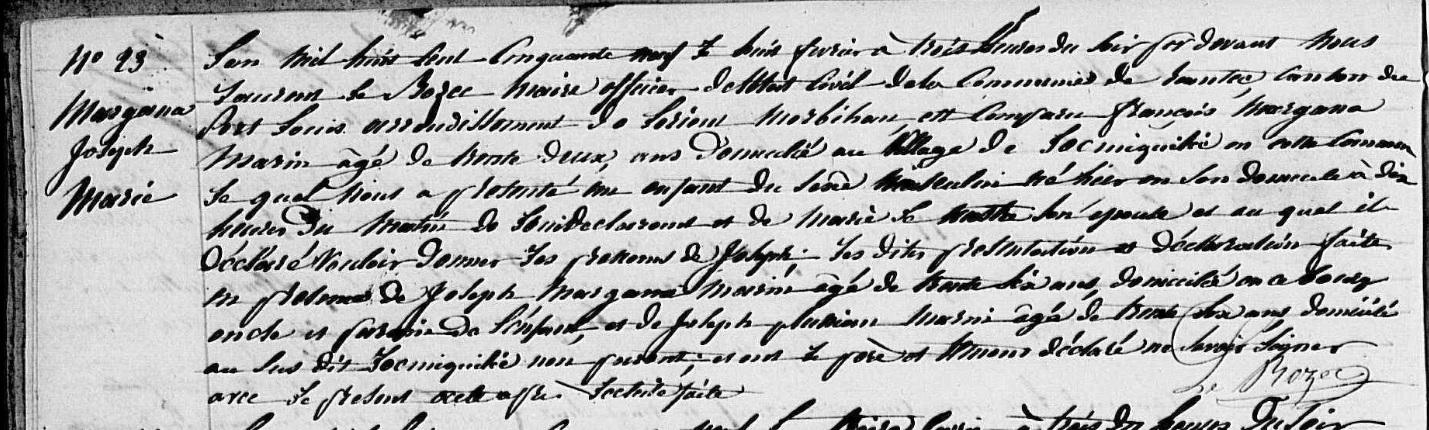 N° 23
Margana
Joseph
Marie
L'an mil huit cent cinquante neuf le huit fevrier à trois heures du soir par devant nous
Laurent Le Rozec maire officier de l'état civil de la commune de riantec canton de
Port Louis arrondissement de Lorient Morbihan est comparu françois Margana
Marin âgé de trente deux ans domicilié au village de Locmiquélic en cette commune
le quel nous a présenté un enfant du sexe masculin né hier en son domicile à dix
heures du matin de lui declarant et de Marie Le son épouse et au quel il a
déclaré vouloir donner les prenoms de Joseph. Les dites présentation et déclaration faites
en présence de Joseph Margana Marin âgé de trente six ans, domicilié en ce bourg
oncle et parrain de l'enfant, et de Joseph Marin âgé de trente six ans domicilié
au sus dit Locmiquélic non parent; et ont le père et témoins déclaré ne savoir signer
avec le présent acte après lecture faite
Le Rozec
à trois heures du soir